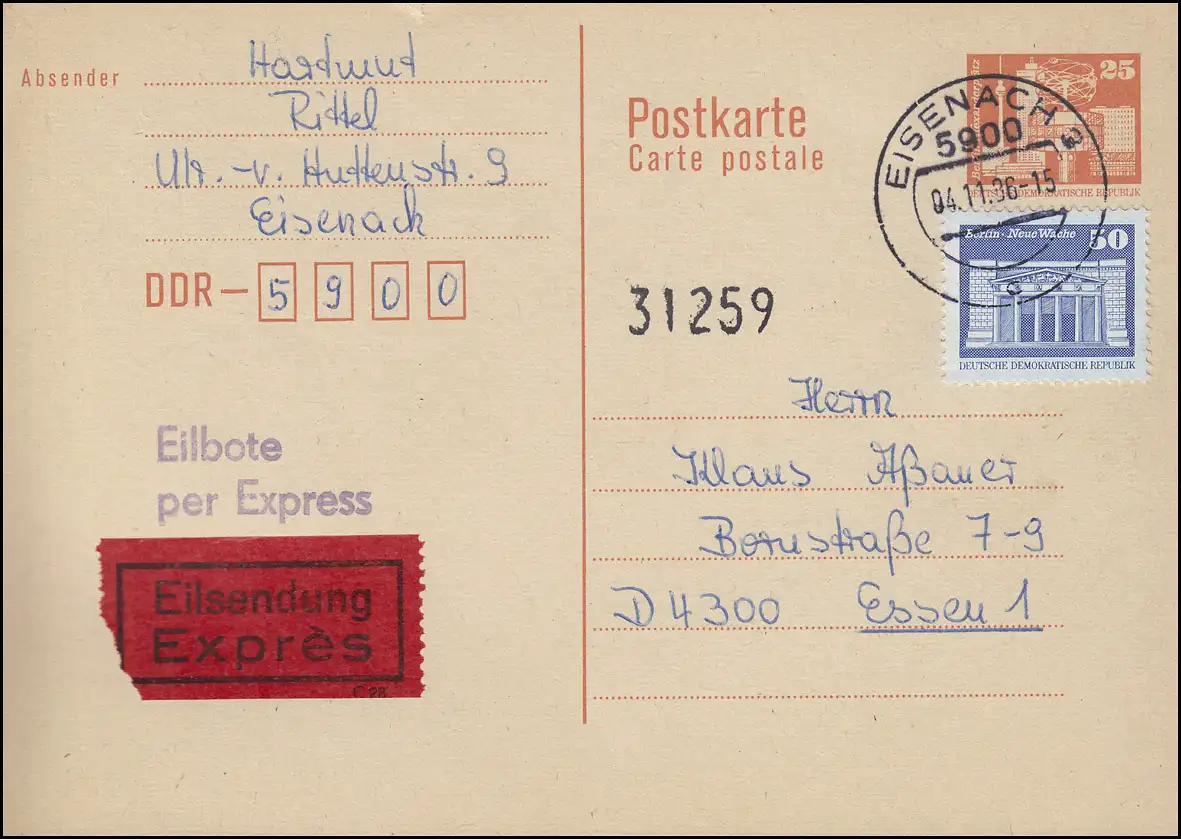 Absender
Hartmut
Rittel
Ulr. -v. Huttenstr. 9
Eisenach
DDR – 5 9 0 0
Eilbote
per Express
Eilsendung
Exprès
C 28
Postkarte
Carte postale
25
DEUTSCHE DEMOKRATISCHE REPUBLIK
EISENACH
5900
04.11.86-15
c
Berlin · Neue Wache 50
DEUTSCHE DEMOKRATISCHE REPUBLIK
31259
Herrn
Klaus Aßauer
Bornstraße 7-9
D 4300 Essen 1